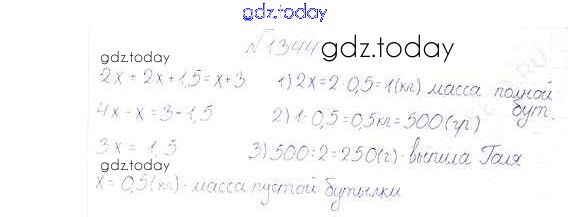 gdz.today
№1344 gdz.today
gdz.today
2x + 2x + 1,5 = x + 3
4x - x = 3 - 1,5
3x = 1,5
gdz.today
x = 0,5 (кг) - масса пустой бутылки
1) 2x = 2·0,5 = 1 (кг) масса полной
бут.
2) 1 - 0,5 = 0,5 кг = 500 (гр.)
3) 500 : 2 = 250 (г) - выпила Галя